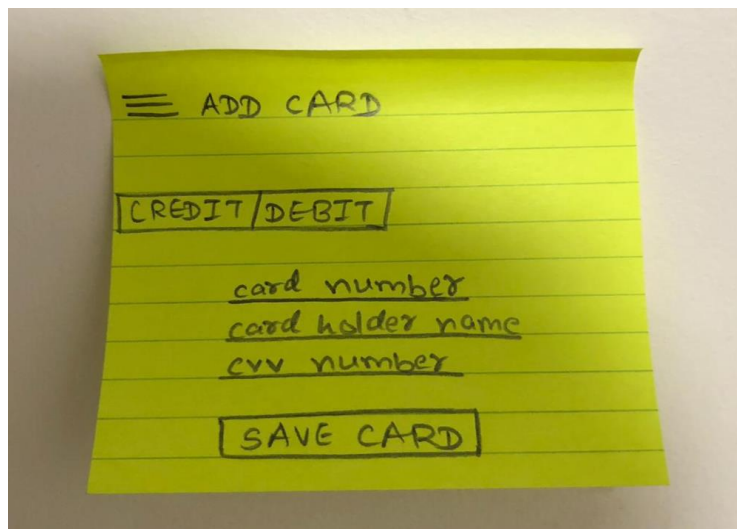 ADD CARD
CREDIT/DEBIT
card number
card holder name
cvv number
SAVE CARD